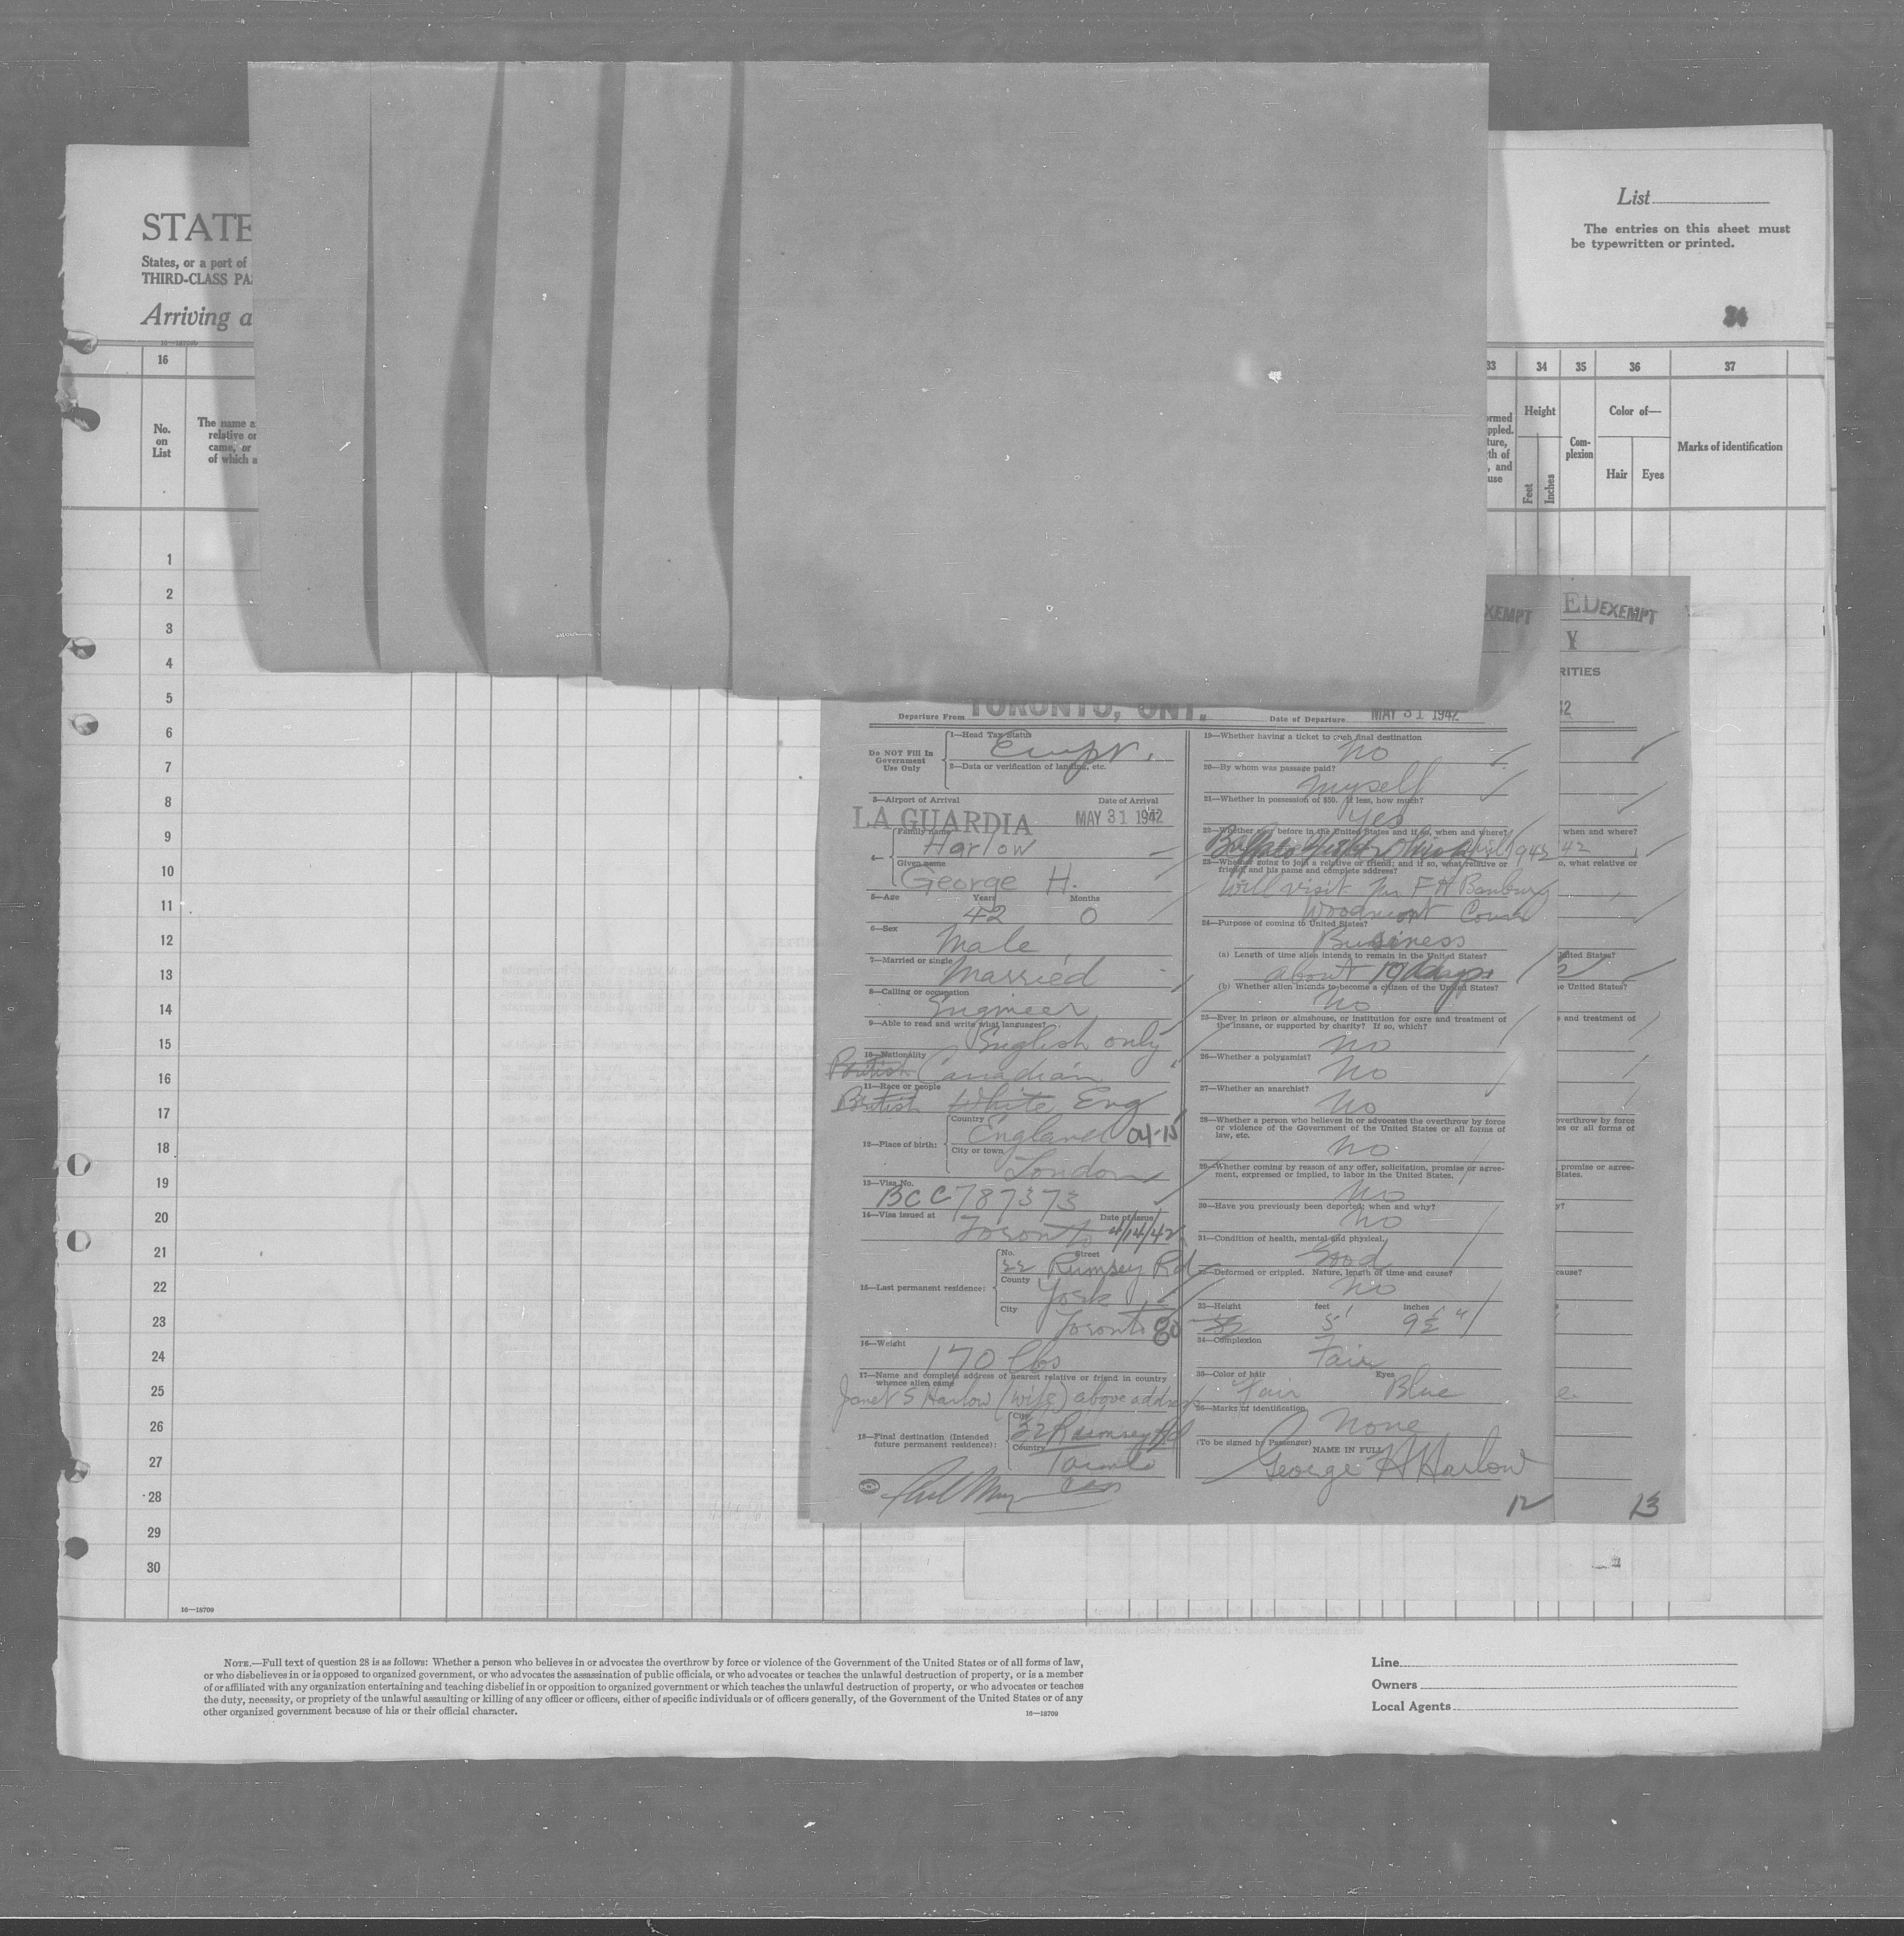 STATE
States, or a port of
THIRD-CLASS PA
Arriving a
List
The entries on this sheet must
be typewritten or printed.
34
16—18709b
16
33
34
35
36
37
No.
on
List
The name a
relative or
came, or
of which a
ormed
ppled.
ture,
th of
, and
use
Height
Feet
Inches
Com-
plexion
Color of—
Hair
Eyes
Marks of identification
1
2
3
4
5
6
7
8
9
10
11
12
13
14
15
16
17
18
19
20
21
22
23
24
25
26
27
28
29
30
16—18709
XEMPT
ED EXEMPT
Y
RITIES
42
Departure From TORONTO, ONT.
Date of Departure MAY 31 1942
Do NOT Fill In
Government
Use Only
1—Head Tax Status
2—Data or verification of landing, etc.
3—Airport of Arrival
Date of Arrival
LA GUARDIA
MAY 31 1942
4—
Family name
Harlow
Given name
George H.
5—Age
Years
Months
42
0
6—Sex
Male
7—Married or single
Married
8—Calling or occupation
Engineer
9—Able to read and write what languages?
English only
10—Nationality
British Canadian
11—Race or people
British White Eng
12—Place of birth:
Country
England 04-15
City or town
London
13—Visa No.
BCC 787373
14—Visa issued at
Date of issue
Toronto 4/14/42
15—Last permanent residence:
No.
Street
22 Rumsey Rd
County
York
City
Toronto 80
16—Weight
170 lbs
17—Name and complete address of nearest relative or friend in country
whence alien came
Janet S Harlow (wife) above address
18—Final destination (Intended
future permanent residence):
City
22 Rumsey Rd
Country
Toronto
Can
19—Whether having a ticket to such final destination
No
20—By whom was passage paid?
Myself
21—Whether in possession of $50. If less, how much?
Yes
22—Whether ever before in the United States and if so, when and where?
Buffalo
April 1942
23—Whether going to join a relative or friend; and if so, what relative or
friend, and his name and complete address?
Will visit Mr F H Banbury
Woodmont Conn
24—Purpose of coming to United States?
Business
(a) Length of time alien intends to remain in the United States?
about 10 days
(b) Whether alien intends to become a citizen of the United States?
No
25—Ever in prison or almshouse, or institution for care and treatment of
the insane, or supported by charity? If so, which?
No
26—Whether a polygamist?
No
27—Whether an anarchist?
No
28—Whether a person who believes in or advocates the overthrow by force
or violence of the Government of the United States or all forms of
law, etc.
No
29—Whether coming by reason of any offer, solicitation, promise or agree-
ment, expressed or implied, to labor in the United States.
No
30—Have you previously been deported; when and why?
No
31—Condition of health, mental and physical.
Good
32—Deformed or crippled. Nature, length of time and cause?
No
33—Height
feet
inches
5'
9½"
34—Complexion
Fair
35—Color of hair
Eyes
Fair
Blue
36—Marks of identification
None
(To be signed by Passenger)
NAME IN FULL
George H Harlow
12
13
when and where?
42
o, what relative or
United States?
e United States?
e and treatment of
overthrow by force
es or all forms of
promise or agree-
States.
y?
cause?
e
NOTE.—Full text of question 28 is as follows: Whether a person who believes in or advocates the overthrow by force or violence of the Government of the United States or of all forms of law,
or who disbelieves in or is opposed to organized government, or who advocates the assassination of public officials, or who advocates or teaches the unlawful destruction of property, or is a member
of or affiliated with any organization entertaining and teaching disbelief in or opposition to organized government or which teaches the unlawful destruction of property, or who advocates or teaches
the duty, necessity, or propriety of the unlawful assaulting or killing of any officer or officers, either of specific individuals or of officers generally, of the Government of the United States or of any
other organized government because of his or their official character.
16—18709
Line
Owners
Local Agents